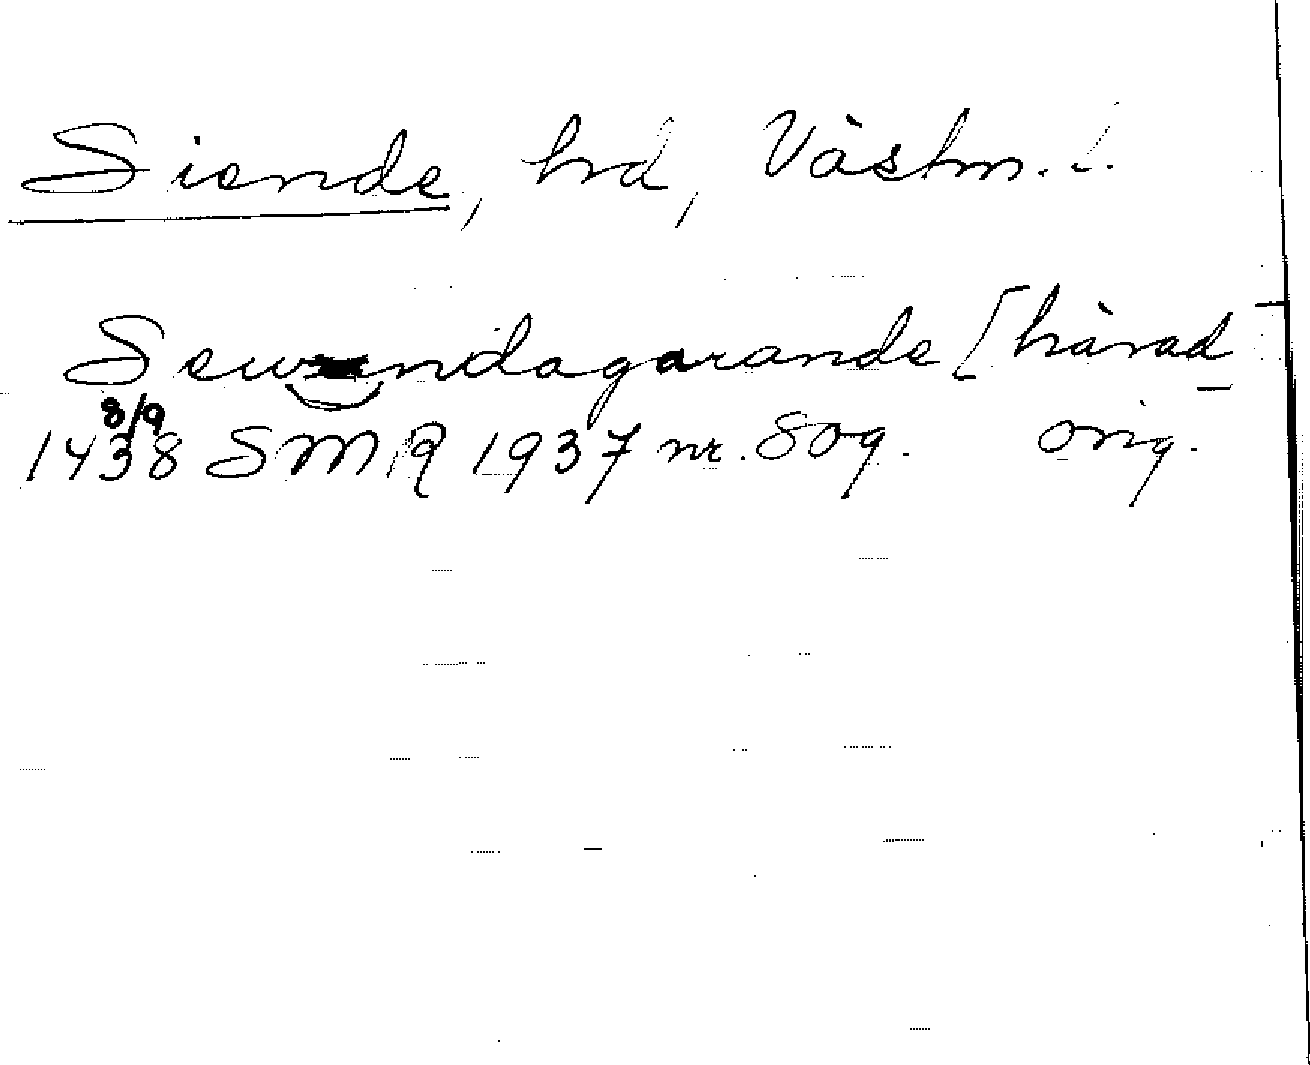 Siende, hd, Västm. l.
Sewendagarande [härad
8/9
1438 SMR 1937 nr. 809. orig.